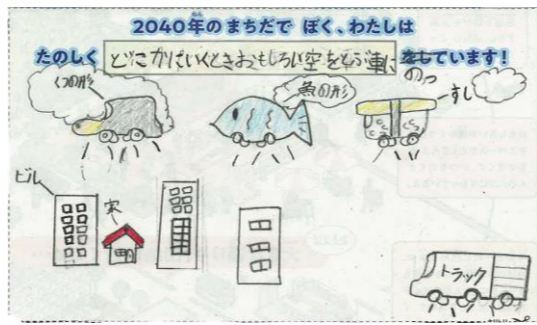 2040年のまちだで ぼく、わたしは
たのしく どこかにいくときおもしろい空をとぶ車にのっています!
くつの形
魚の形
すし
ビル
家
トラック